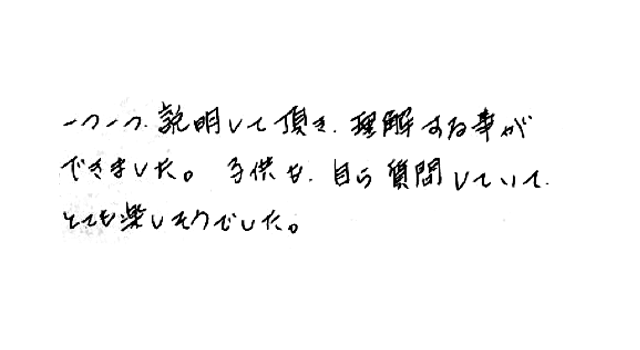 一つ一つ、説明して頂き、理解する事が
できました。子供も、自ら質問していて、
とても楽しそうでした。